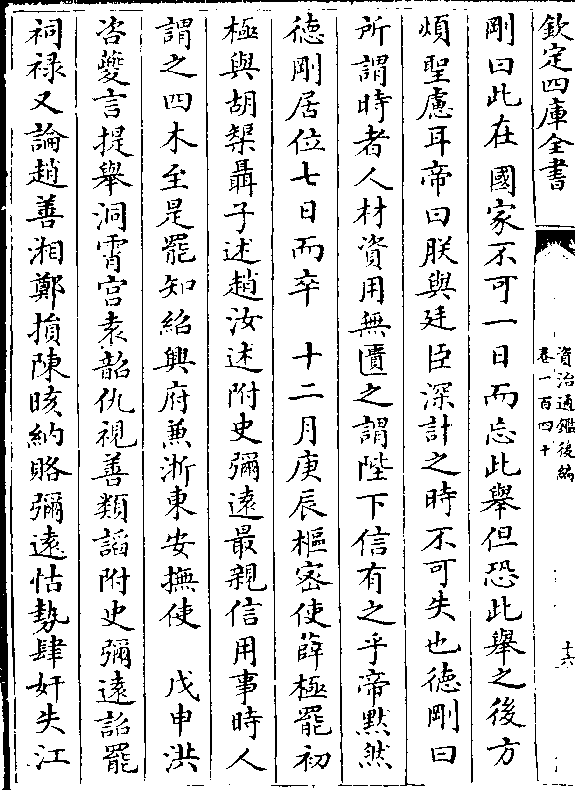 欽定四庫全書
資治通鑑後編
卷一百四十
十六
剛曰此在國家不可一日而忘此舉但恐此舉之後方
煩聖慮耳帝曰朕與廷臣深計之時不可失也德剛曰
所謂時者人材資用無匱之謂陛下信有之乎帝黙然
德剛居位七日而卒　十二月庚辰樞密使薛極罷初
極與胡榘聶子述趙汝述附史彌遠最親信用事時人
謂之四木至是罷知紹興府兼浙東安撫使　戊申洪
咨夔言提舉洞霄宫袁韶仇視善類諂附史彌遠詔罷
祠禄又論趙善湘鄭損陳晐納賂彌遠怙勢肆奸失江